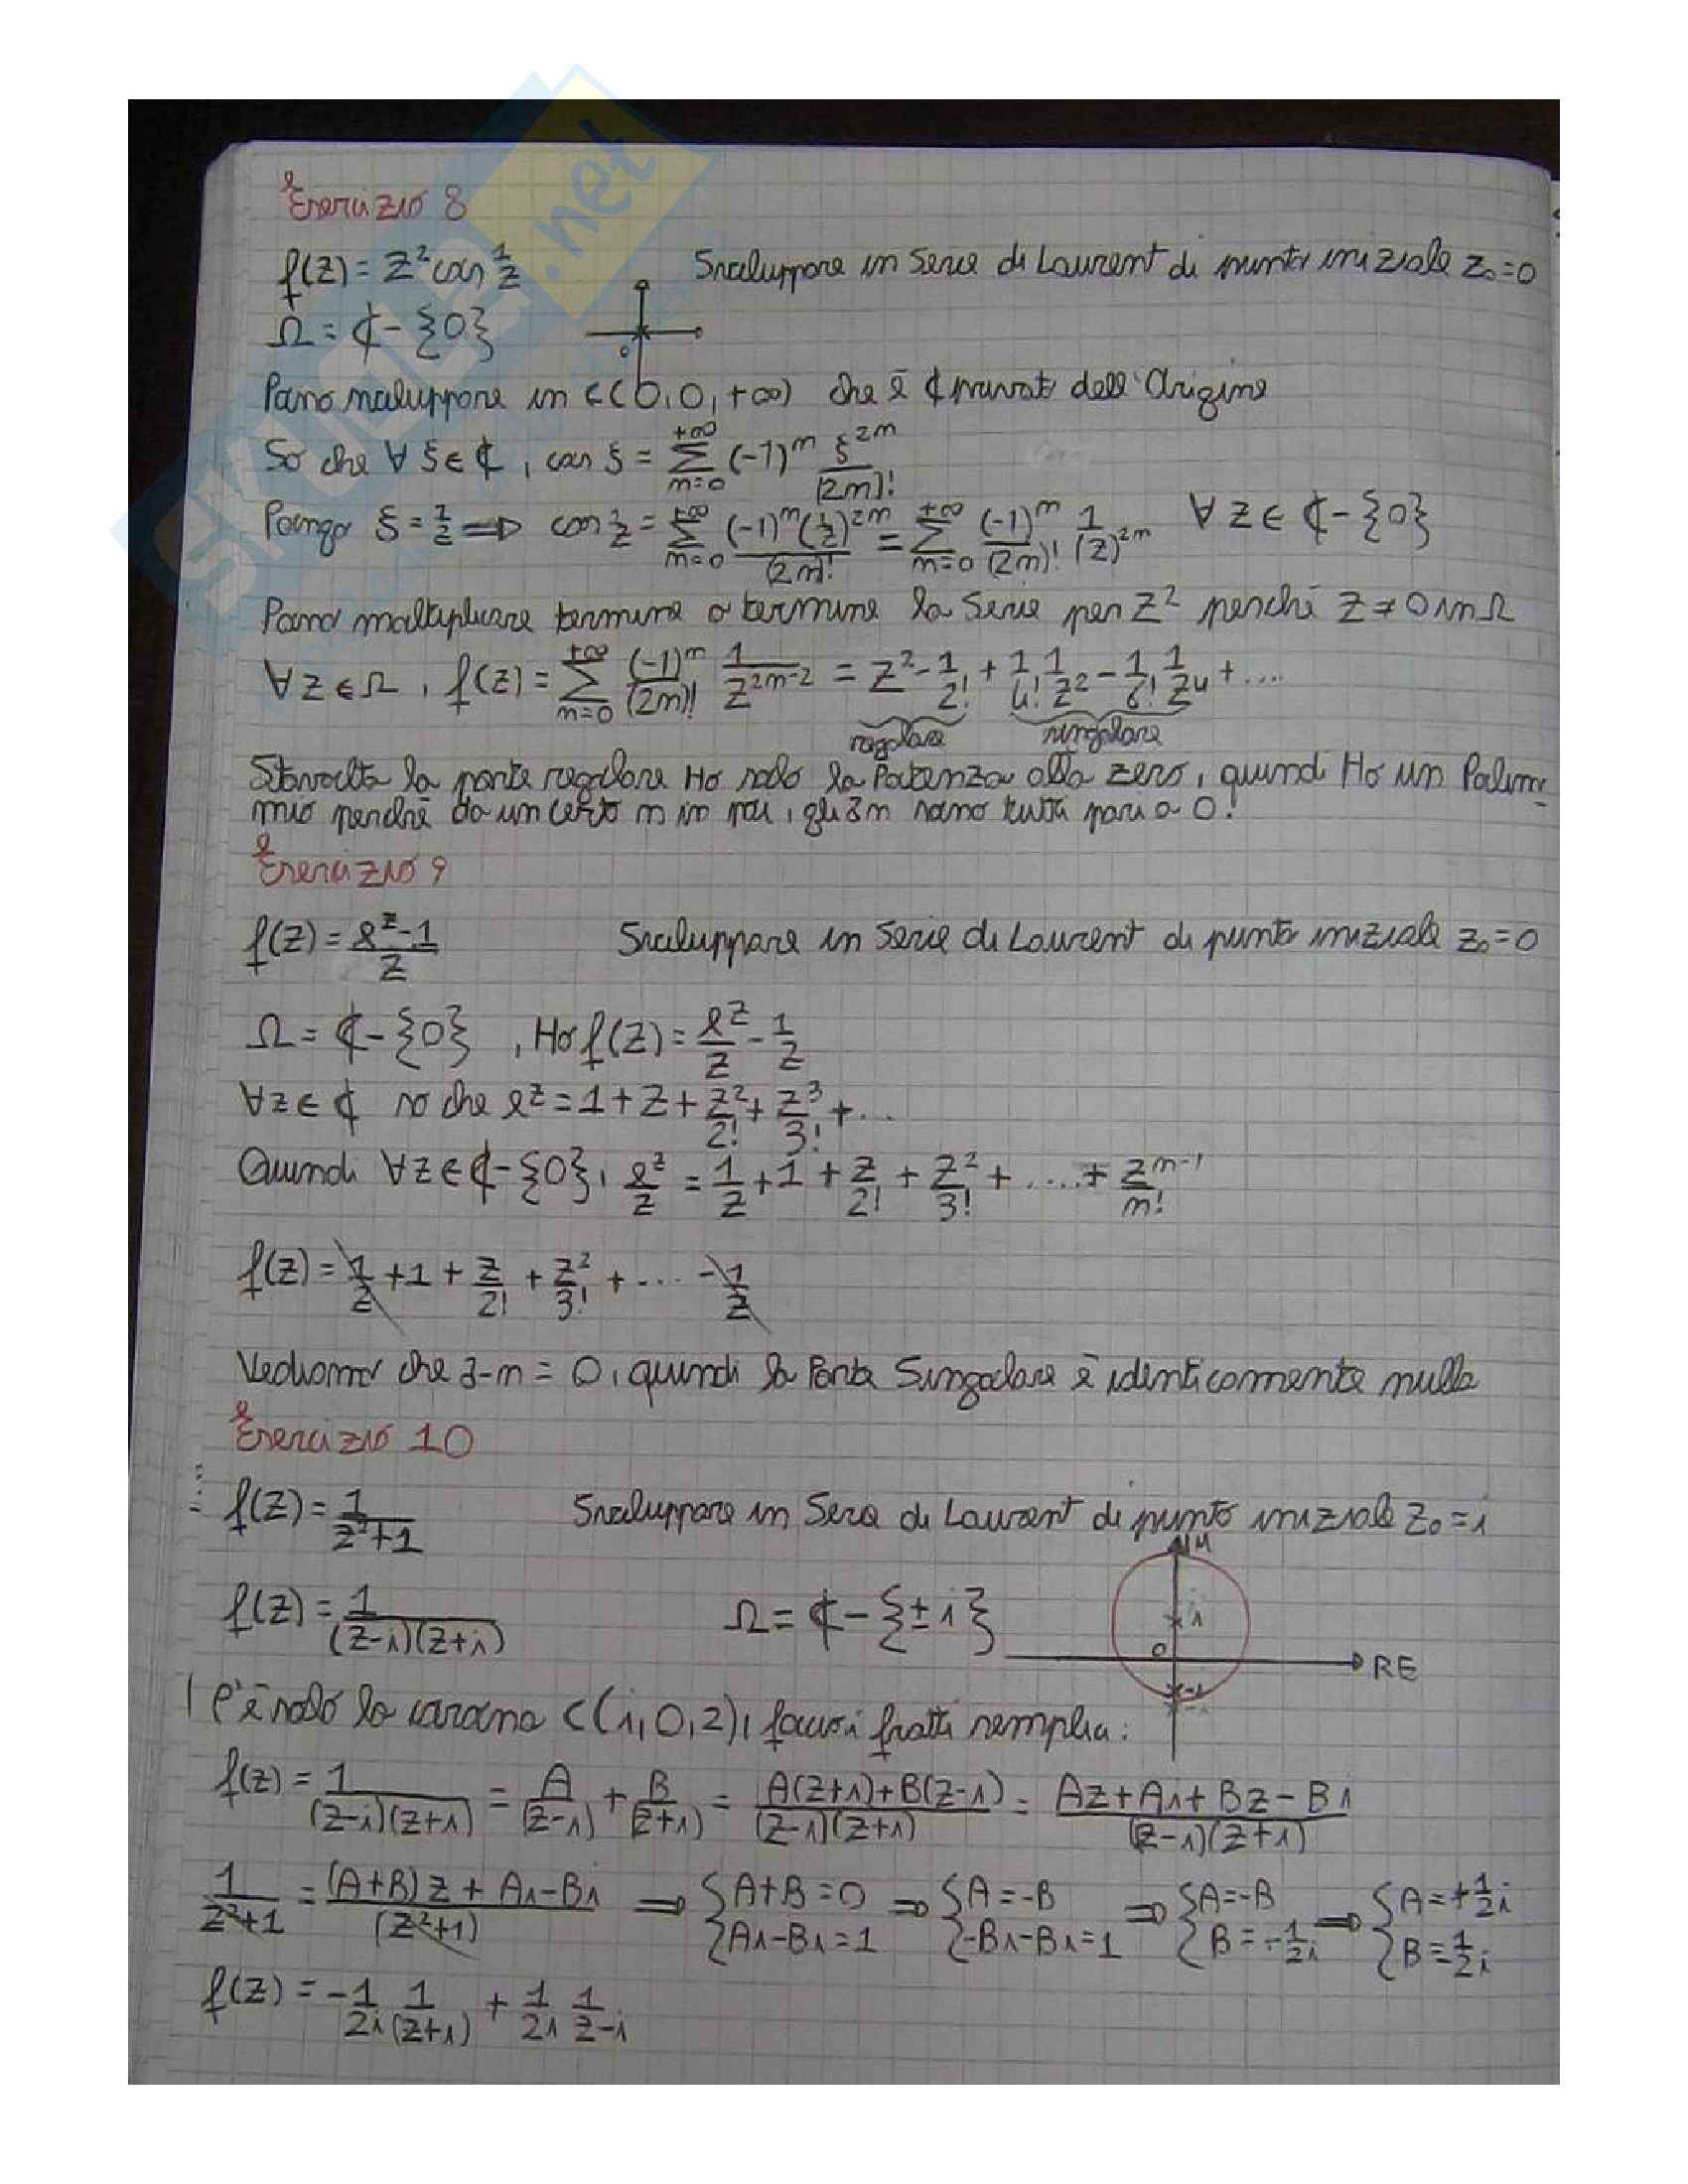 Esercizio 8
f(z) = z² cos 1/z Sviluppare in Serie di Laurent di punto iniziale z₀=0
Ω = ₵ - {0}
0
Posso sviluppare in C(0,0,+∞) che è ₵ privato dell'Origine
So che ∀ ξ ∈ ₵, cos ξ = Σ_{n=0}^{+∞} (-1)^n ξ^{2n}/(2n)!
Pongo ξ = 1/z ⇒ cos 1/z = Σ_{n=0}^{+∞} (-1)^n (1/z)^{2n}/(2n)! = Σ_{n=0}^{+∞} (-1)^n/(2n)! 1/(z)^{2n} ∀ z ∈ ₵ - {0}
Posso moltiplicare termine a termine la Serie per z² perché z ≠ 0 in Ω
∀ z ∈ Ω, f(z) = Σ_{n=0}^{+∞} (-1)^n/(2n)! 1/z^{2n-2} = z² - 1/2! + 1/4! 1/z² - 1/6! 1/z⁴ + ....
regolare singolare
Stavolta la parte regolare Ho solo la Potenza alla zero, quindi Ho un Polino-
mio perché da un certo n in poi, gli an sono tutti pari a 0!
Esercizio 9
f(z) = e^z - 1/z Sviluppare in Serie di Laurent di punto iniziale z₀=0
Ω = ₵ - {0}, Ho f(z) = e^z/z - 1/z
∀ z ∈ ₵ so che e^z = 1 + z + z²/2! + z³/3! + ...
Quindi ∀ z ∈ ₵ - {0}, e^z/z = 1/z + 1 + z/2! + z²/3! + ....+ z^{n-1}/n!
f(z) = 1/z + 1 + z/2! + z²/3! + .... - 1/z
Vediamo che a-n = 0, quindi la Parte Singolare è identicamente nulla
Esercizio 10
f(z) = 1/z²+1 Sviluppare in Serie di Laurent di punto iniziale z₀=i
IM
f(z) = 1/(z-i)(z+i) Ω = ₵ - {±i}
i
0
RE
-i
C'è solo la corona C(i,0,2), faccio i fratti semplici:
f(z) = 1/(z-i)(z+i) = A/(z-i) + B/(z+i) = A(z+i)+B(z-i)/(z-i)(z+i) = Az+Ai+Bz-Bi/(z-i)(z+i)
1/z²+1 = (A+B)z + Ai-Bi/(z²+1) ⇒ {A+B=0 {Ai-Bi=1 ⇒ {A=-B {-Bi-Bi=1 ⇒ {A=-B {B=-1/2i ⇒ {A=+1/2i {B=-1/2i
f(z) = -1/2i 1/(z+i) + 1/2i 1/z-i